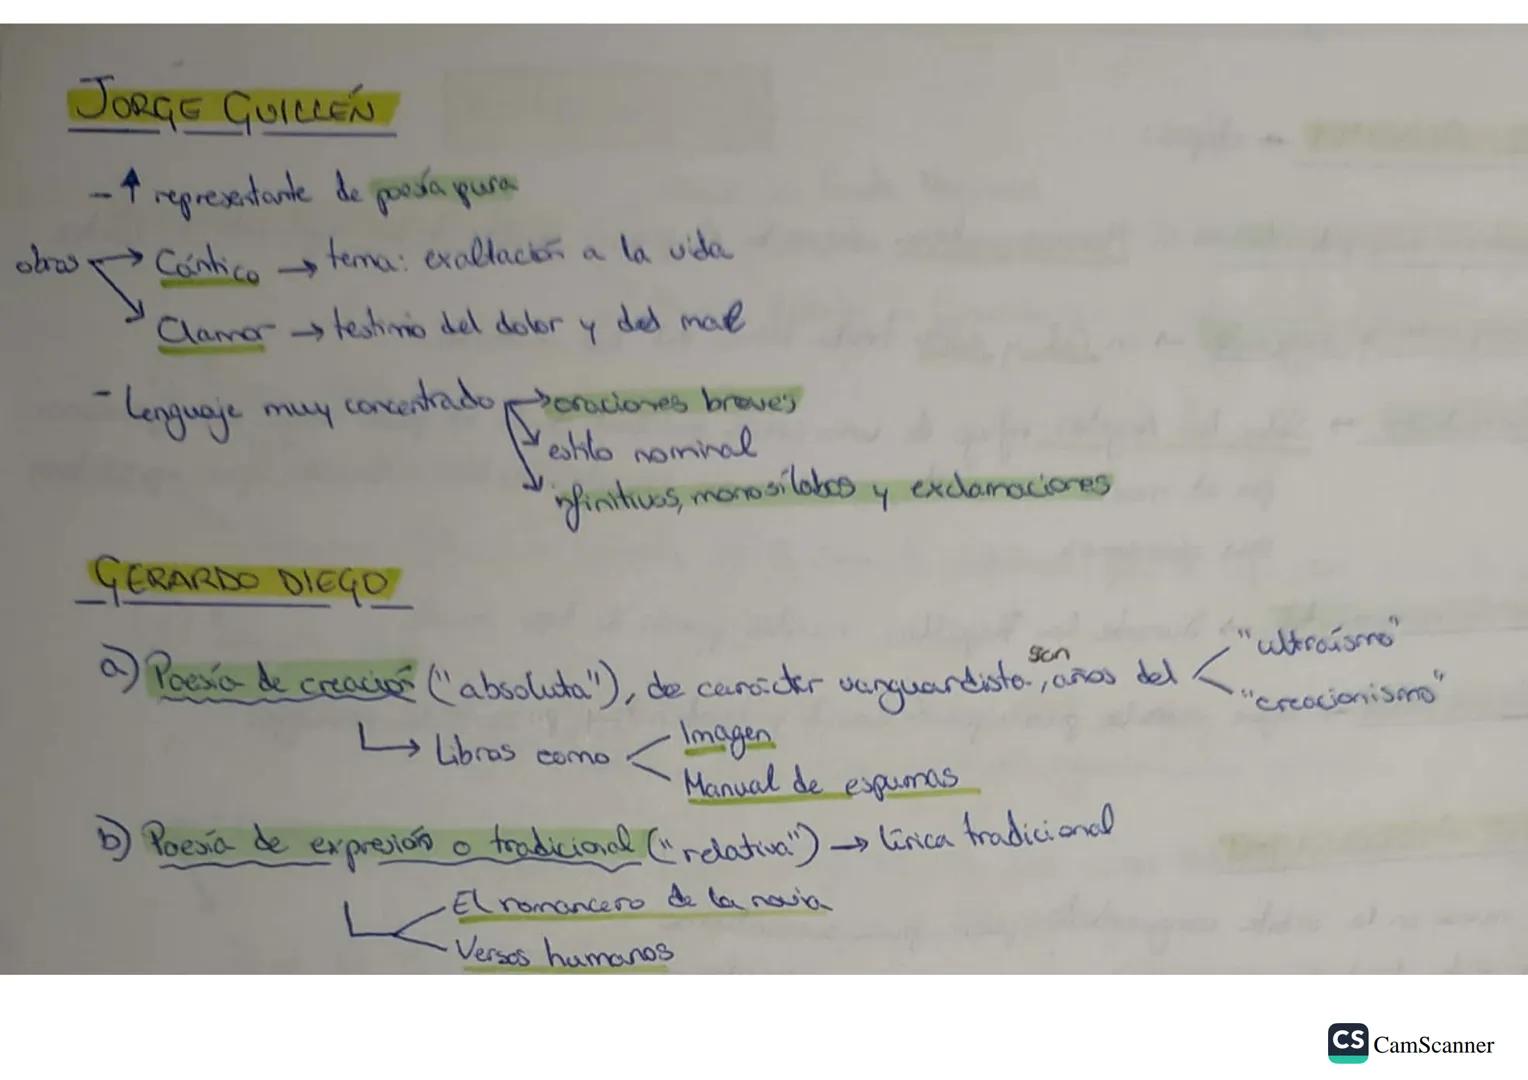 JORGE GUILLÉN
-↑ representante de poesía pura
obras → Cántico → tema: exaltación a la vida
→ Clamor → testimio del dolor y del mal
- Lenguaje muy concentrado → oraciones breves
→ estilo nominal
→ infinitivos, monosílabos y exclamaciones
GERARDO DIEGO
a) Poesía de creación ("absoluta"), de carácter vanguardista, son años del "ultraísmo"
"creacionismo"
→ Libros como Imagen
Manual de espumas
b) Poesía de expresión o tradicional ("relativa") → lírica tradicional
El romancero de la novia
Versos humanos
CS CamScanner